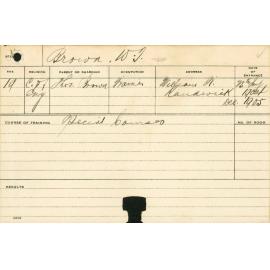 Brown, W. J.
AGE RELIGION PARENT OR GUARDIAN OCCUPATION ADDRESS DATE OF ENTRANCE
19 C. of Eng Thos. Brown Farmer William St. Randwick
1905
COURSE OF TRAINING Special Course NO. OF ROOM
RESULTS